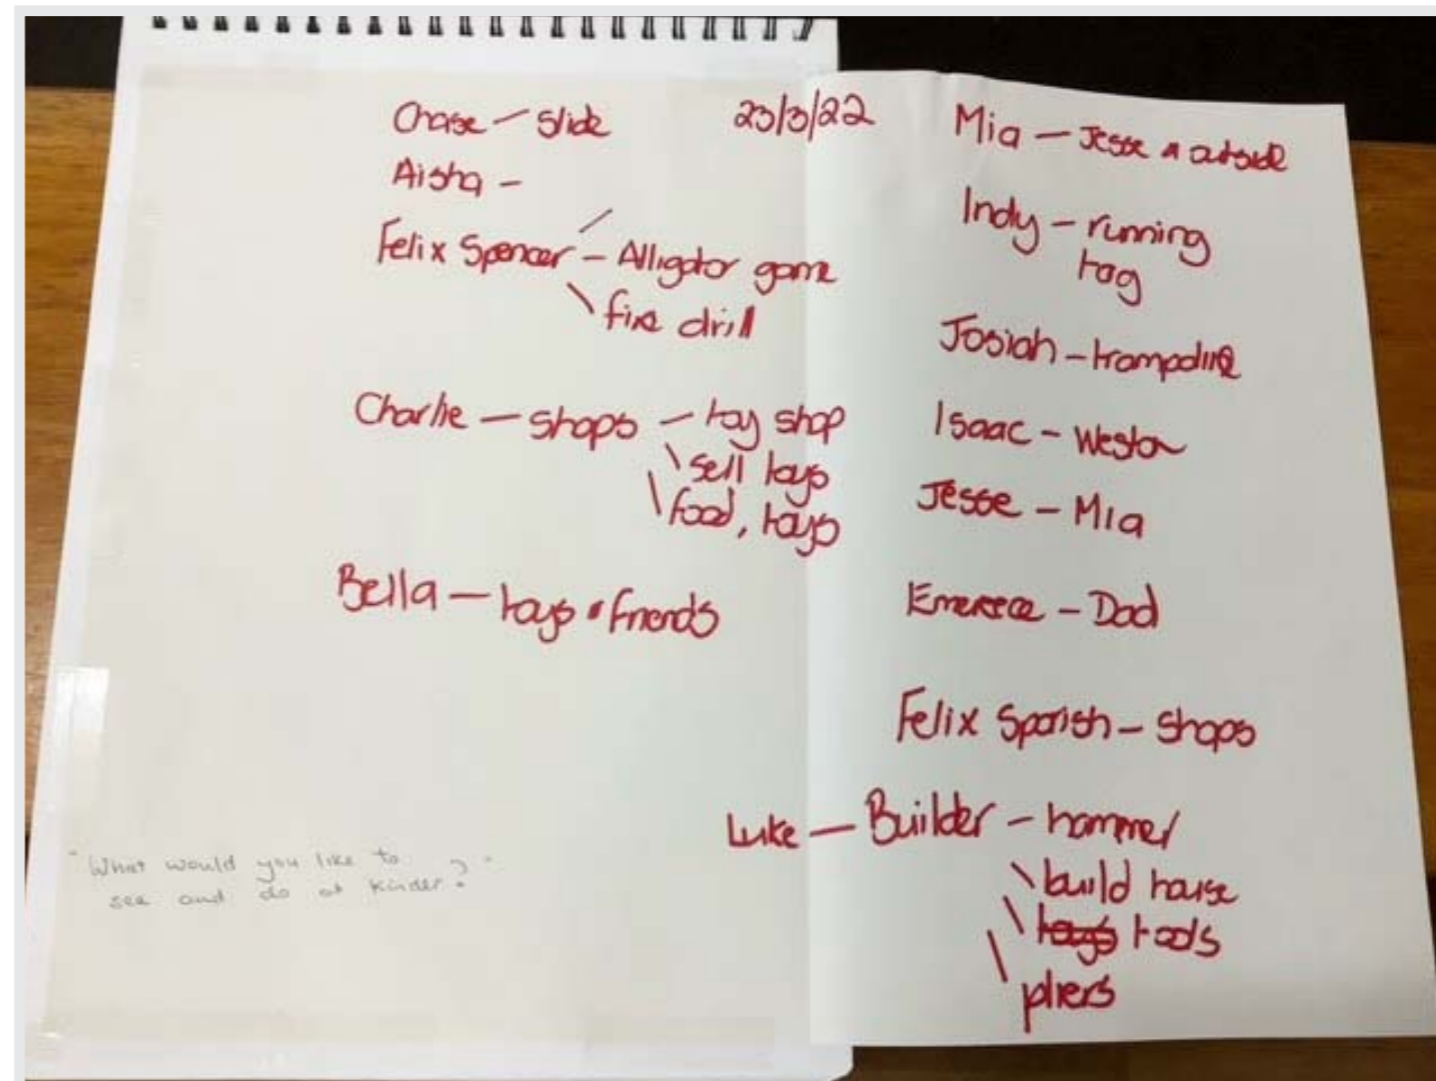 23/3/22
Chase – slide
Aisha –
Felix Spencer – Alligator game
fire drill
Charlie – shops – toy shop
sell toys
food, toys
Bella – toys & friends
"What would you like to
see and do at kinder?"
Mia – Jesse & outside
Indy – running
tag
Josiah – trampoline
Isaac – Weston
Jesse – Mia
– Dad
Felix Spanish – shops
Luke – Builder – hammer
build house
toys tools
pliers